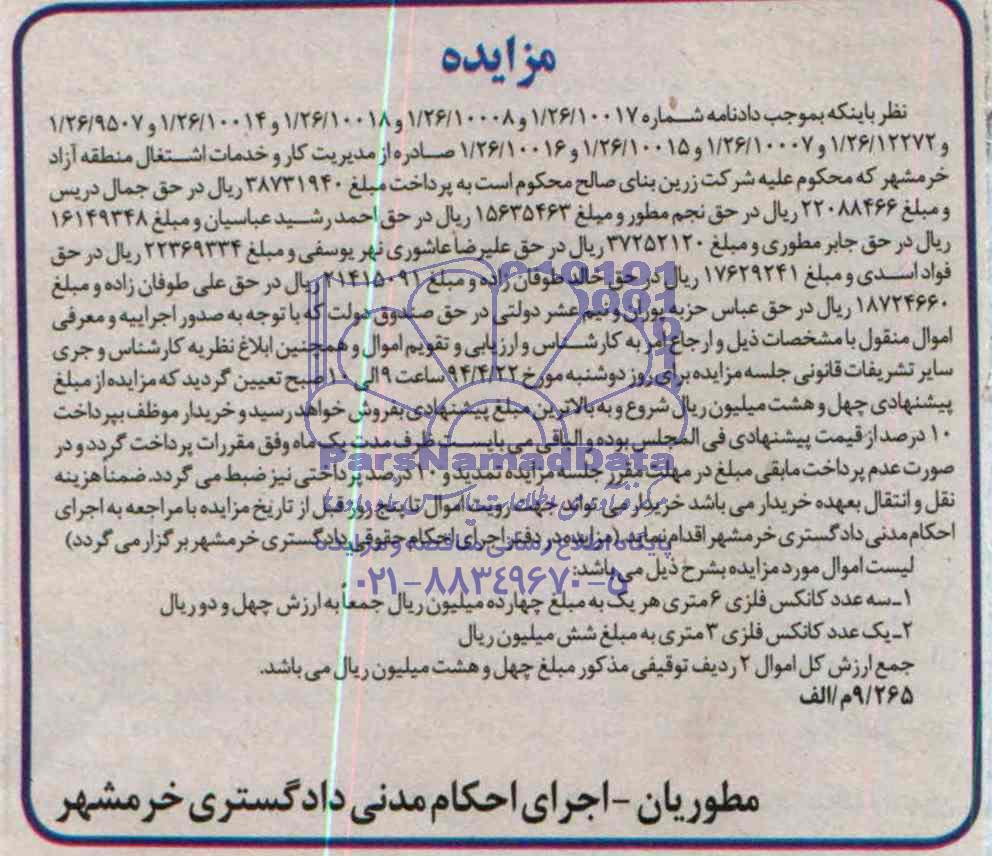 مزایده
نظر باینکه بموجب دادنامه شماره ۱/۲۶/۱۰۰۱۷ و ۱/۲۶/۱۰۰۰۸ و ۱/۲۶/۱۰۰۱۸ و ۱/۲۶/۱۰۰۱۴ و ۱/۲۶/۹۵۰۷
و ۱/۲۶/۱۲۲۷۲ و ۱/۲۶/۱۰۰۰۷ و ۱/۲۶/۱۰۰۱۵ و ۱/۲۶/۱۰۰۱۶ صادره از مدیریت کار و خدمات اشتغال منطقه آزاد
خرمشهر که محکوم علیه شرکت زرین بنای صالح محکوم است به پرداخت مبلغ ۳۸۷۳۱۹۴۰ ریال در حق جمال دریس
و مبلغ ۲۲۰۸۸۴۶۶ ریال در حق نجم مطور و مبلغ ۱۵۶۳۵۴۶۳ ریال در حق احمد رشید عباسیان و مبلغ ۱۶۱۴۹۳۴۸
ریال در حق جابر مطوری و مبلغ ۳۷۲۵۲۱۲۰ ریال در حق علیرضا عاشوری نهر یوسفی و مبلغ ۲۲۳۶۹۳۳۴ ریال در حق
فواد اسدی و مبلغ ۱۷۶۲۹۲۴۱ ریال در حق خالد طوفان زاده و مبلغ ۲۱۴۱۵۰۹۱ ریال در حق علی طوفان زاده و مبلغ
۱۸۷۲۴۶۶۰ ریال در حق عباس حزبه پوران و نیم عشر دولتی در حق صندوق دولت که با توجه به صدور اجراییه و معرفی
اموال منقول با مشخصات ذیل و ارجاع امر به کارشناس و ارزیابی و تقویم اموال و همچنین ابلاغ نظریه کارشناس و جری
سایر تشریفات قانونی جلسه مزایده برای روز دوشنبه مورخ ۹۴/۴/۲۲ ساعت ۹ الی ۱۰ صبح تعیین گردید که مزایده از مبلغ
پیشنهادی چهل و هشت میلیون ریال شروع و به بالاترین مبلغ پیشنهادی بفروش خواهد رسید و خریدار موظف بپرداخت
۱۰ درصد از قیمت پیشنهادی فی المجلس بوده و الباقی می بایست ظرف مدت یک ماه وفق مقررات پرداخت گردد و در
صورت عدم پرداخت مابقی مبلغ در مهلت مقرر جلسه مزایده تمدید و ۱۰ درصد پرداختی نیز ضبط می گردد. ضمناً هزینه
نقل و انتقال بعهده خریدار می باشد خریدار می تواند جهت رویت اموال تا پنج روز قبل از تاریخ مزایده با مراجعه به اجرای
احکام مدنی دادگستری خرمشهر اقدام نماید. (مزایده در دفتر اجرای احکام حقوقی دادگستری خرمشهر برگزار می گردد)
لیست اموال مورد مزایده بشرح ذیل می باشد:
۱ـ سه عدد کانکس فلزی ۶ متری هر یک به مبلغ چهارده میلیون ریال جمعاً به ارزش چهل و دو ریال
۲ـ یک عدد کانکس فلزی ۳ متری به مبلغ شش میلیون ریال
جمع ارزش کل اموال ۲ ردیف توقیفی مذکور مبلغ چهل و هشت میلیون ریال می باشد.
۹/۲۶۵م/الف
مطوریان - اجرای احکام مدنی دادگستری خرمشهر
ParsNamadData
پایگاه اطلاع رسانی مناقصه و مزایده
۰۲۱-۸۸۳۴۹۶۷۰-۵